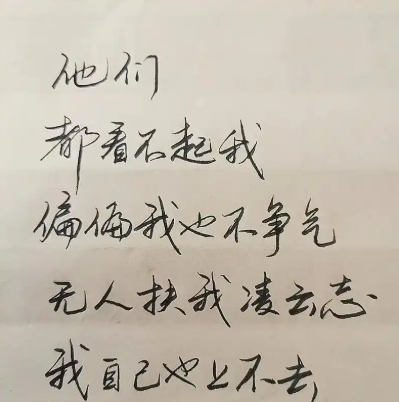 他们
都看不起我
偏偏我也不争气
无人扶我凌云志
我自己也上不去